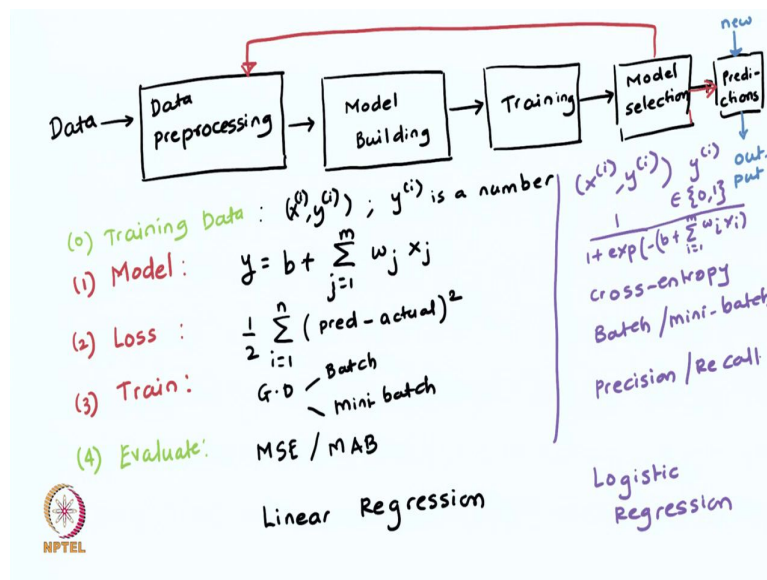 new
Data
Data
preprocessing
Model
Building
Training
Model
selection
Predi-
ctions
out-
put
(0) Training Data : (x⁽ⁱ⁾, y⁽ⁱ⁾) ; y⁽ⁱ⁾ is a number
(1) Model : y = b + Σ_{j=1}^{m} w_j x_j
(2) Loss : 1/2 Σ_{i=1}^{n} (pred - actual)²
(3) Train : G.D Batch
mini batch
(4) Evaluate : MSE / MAB
Linear Regression
(x⁽ⁱ⁾, y⁽ⁱ⁾) y⁽ⁱ⁾
∈ {0,1}
1 / 1 + exp(-(b + Σ_{i=1}^{m} w_i x_i)
cross-entropy
Batch / mini-batch
Precision / Recall
Logistic
Regression
NPTEL